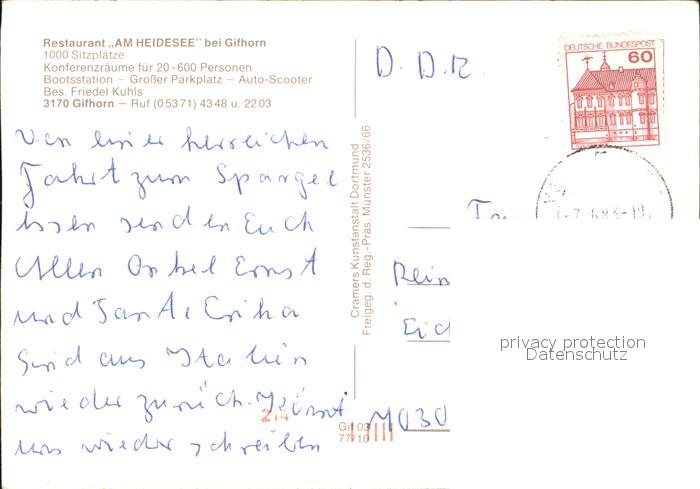 Restaurant „AM HEIDESEE" bei Gifhorn
1000 Sitzplätze
Konferenzräume für 20-600 Personen
Bootsstation – Großer Parkplatz – Auto-Scooter
Bes. Friedel Kuhls
3170 Gifhorn – Ruf (05371) 4348 u. 2203
Von einer herrlichen
Fahrt zum Spargel
essen senden Euch
Allen Onkel Ernst
und Tante Erika
Sind aus Italien
wieder zurück. Könnt
uns wieder schreiben
Cramers Kunstanstalt Dortmund
Freigeg. d. Reg.-Präs. Münster 2536/66
Gif 03
77/10
D. D. R.
DEUTSCHE BUNDESPOST
60
Rein
Eic
7030
privacy protection
Datenschutz